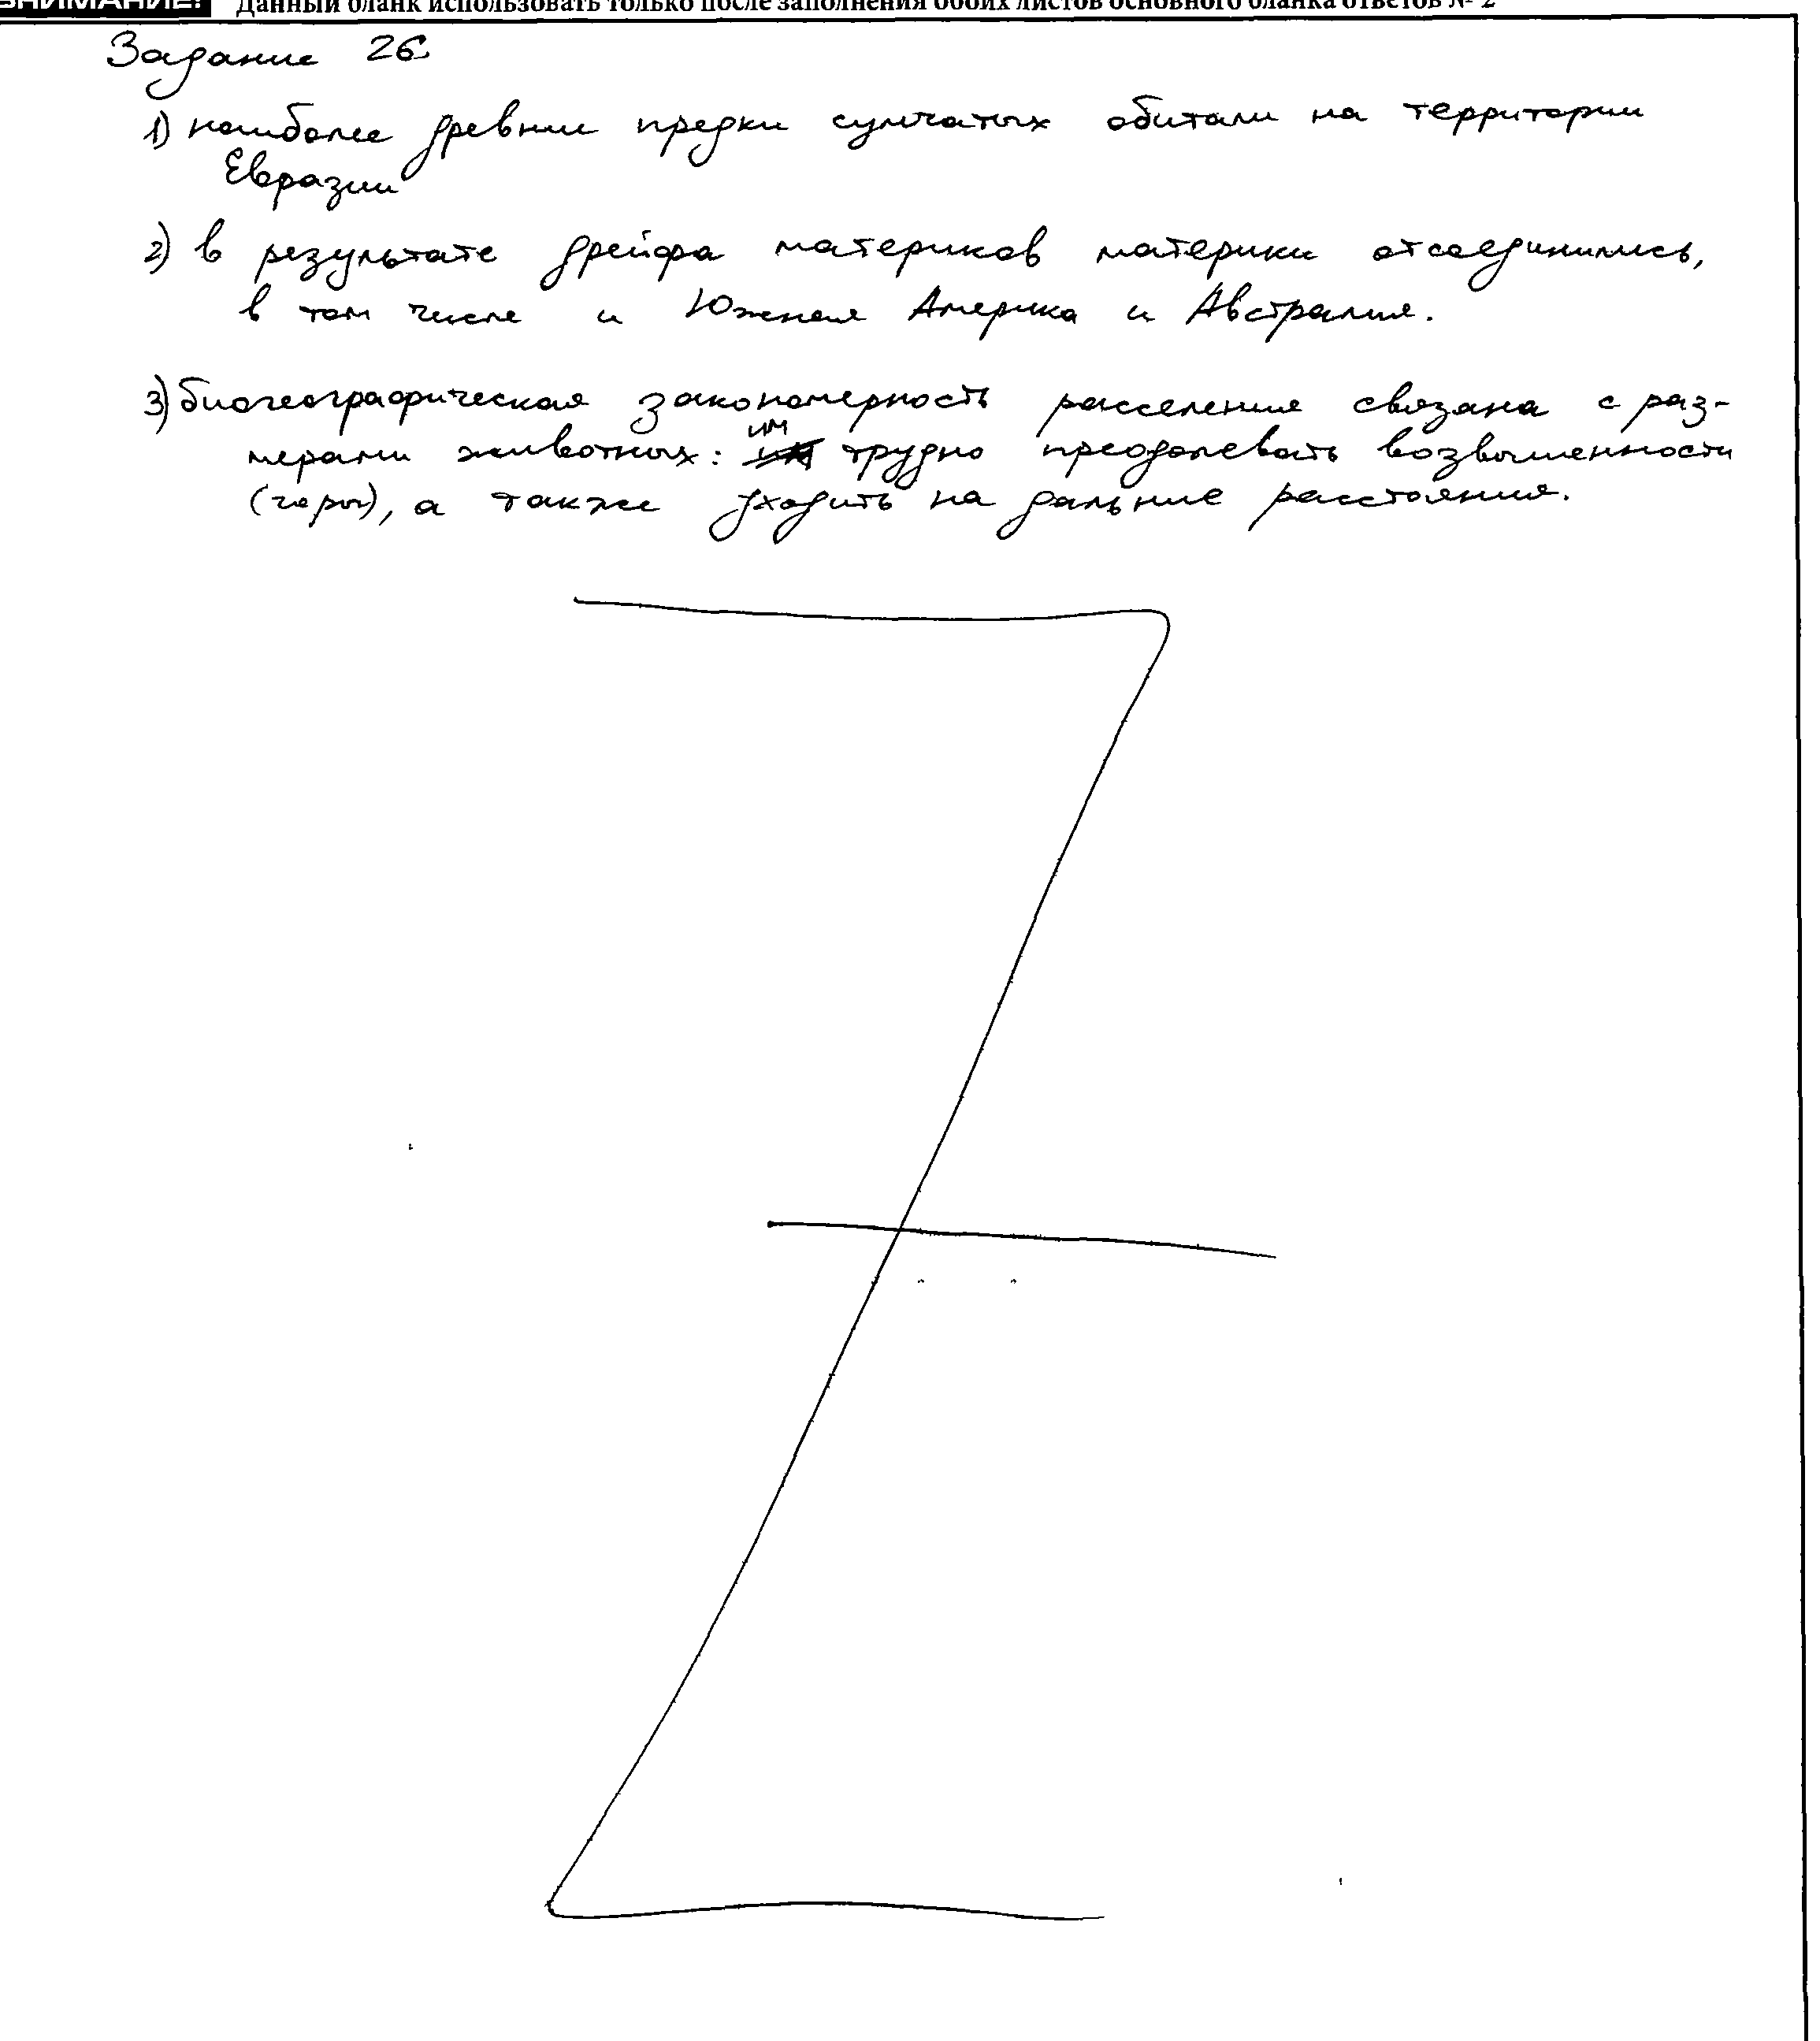 ВНИМАНИЕ! Данный бланк использовать только после заполнения обоих листов основного бланка ответов № 2
Задание 26.
1) наиболее древние предки сумчатых обитали на территории
Евразии
2) в результате дрейфа материков материки отсоединились,
в том числе и Южная Америка и Австралия.
3) биогеографическая закономерность расселения связана с раз-
мерами животных: им трудно преодолевать возвышенности
(горы), а также уходить на дальние расстояния.